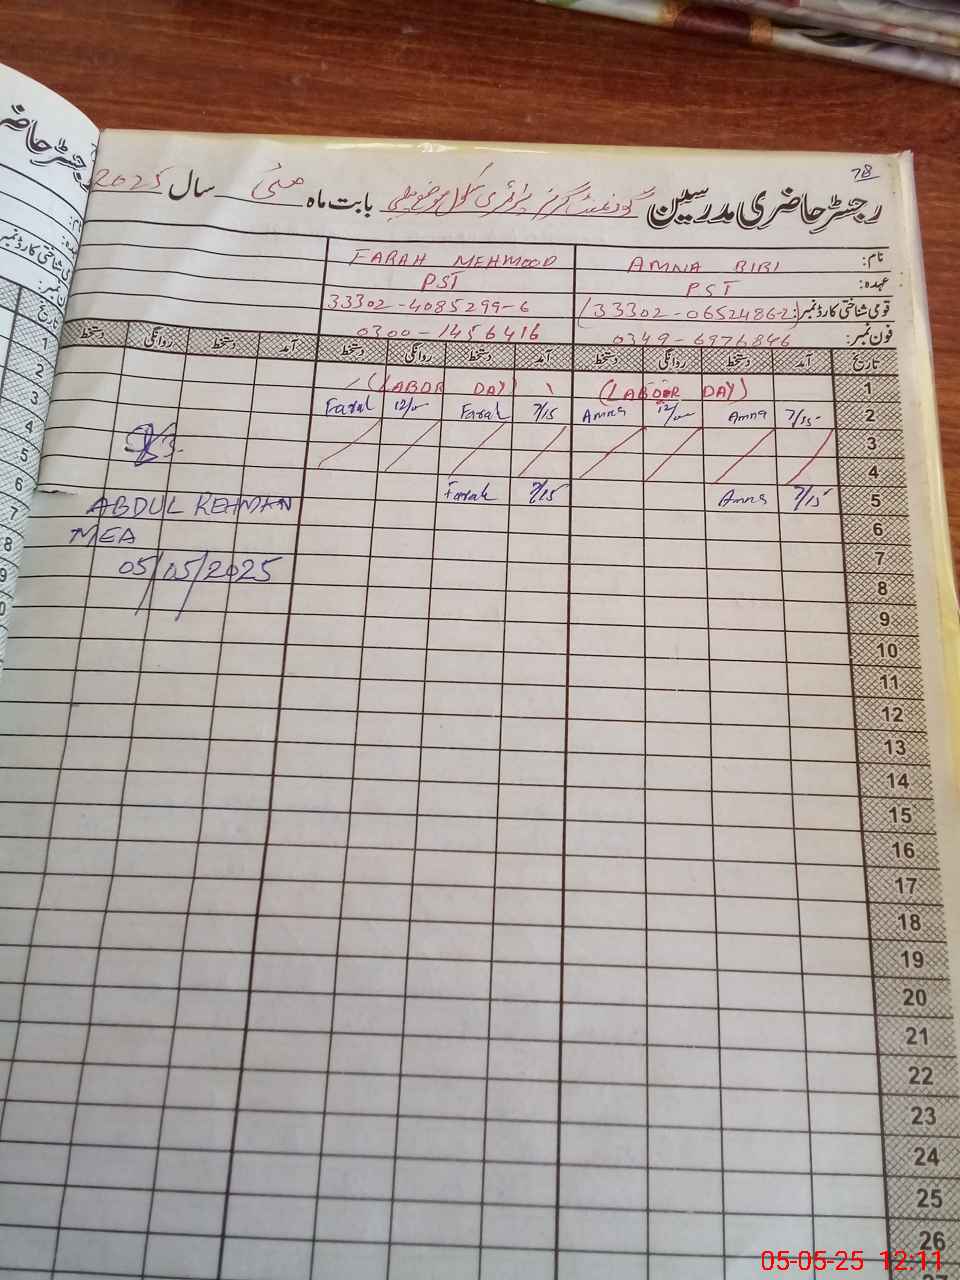 78
رجسٹر حاضری مدرسین گورنمنٹ گرلز پرائمری سکول موضع بابت ماہ مئی سال 2025
نام: AMNA BIBI FARAH MEHMOOD
عہدہ: PST PST
قومی شناختی کارڈ نمبر: (33302-0652486-2) 33302-4085299-6
فون نمبر: 0349-6976846 0300-1456416
تاریخ آمد دستخط روانگی دستخط آمد دستخط روانگی دستخط آمد دستخط روانگی دستخط
1 (LABOR DAY) (LABOR DAY)
2 7/15 Amna 12/00 Amna 7/15 Farah 12/00 Farah
3
4
5 7/15 Amna 7/15 Farah
6
7
8
9
10
11
12
13
14
15
16
17
18
19
20
21
22
23
24
25
26
ABDUL REHMAN
MEA
05/05/2025
رجسٹر حاضری
نام:
عہدہ:
قومی شناختی کارڈ نمبر
فون نمبر:
تاریخ
1
2
3
4
5
6
7
8
9
05-05-25 12:11